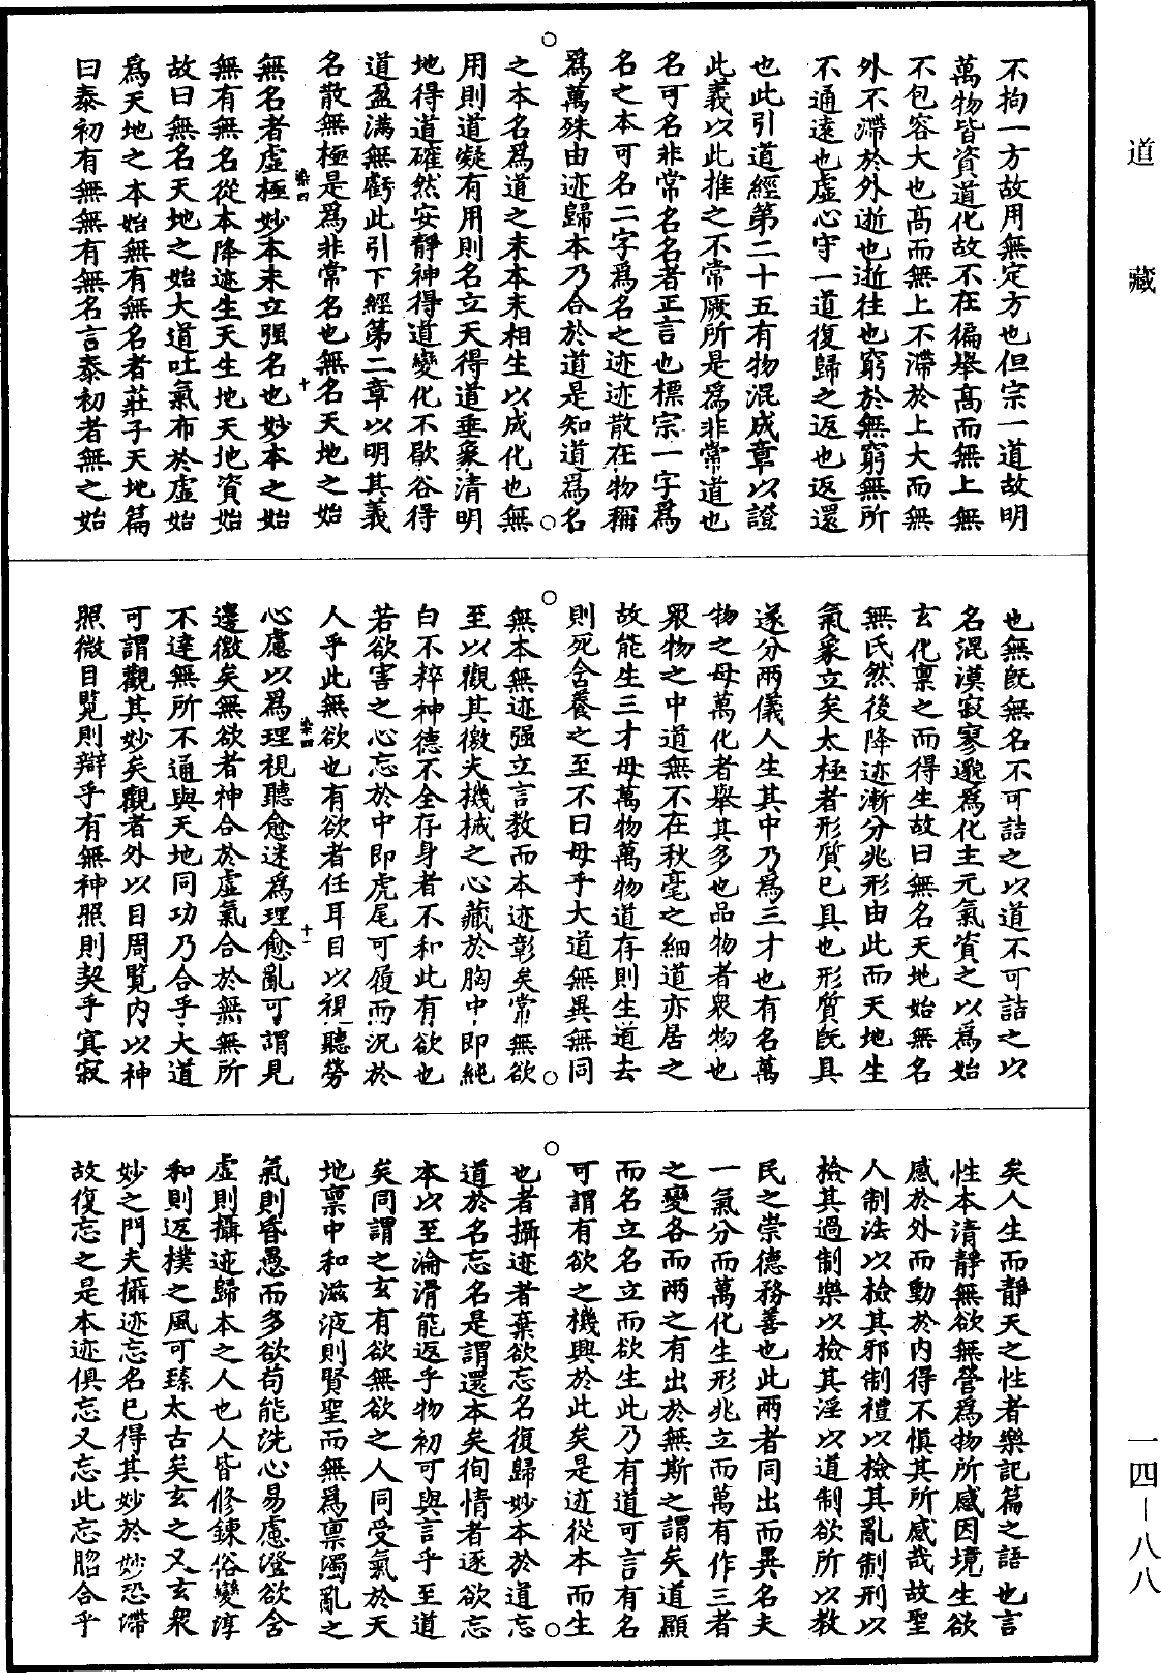 道藏
一四—八八
不拘一方故用無定方也但宗一道故明
萬物皆資道化故不在徧舉高而無上無
不包容大也高而無上不滯於上大而無
外不滯於外逝也逝往也窮於無窮無所
不通遠也虛心守一道復歸之返也返還
也此引道經第二十五有物混成章以證
此義以此推之不常厥所是爲非常道也
名可名非常名名者正言也標宗一字爲
名之本可名二字爲名之迹迹散在物稱
爲萬殊由迹歸本乃合於道是知道爲名
之本名爲道之末本末相生以成化也無
用則道凝有用則名立天得道垂象清明
地得道確然安靜神得道變化不歇谷得
道盈滿無虧此引下經第二章以明其義
名散無極是爲非常名也無名天地之始
染四
十
無名者虛極妙本未立强名也妙本之始
無有無名從本降迹生天生地天地資始
故曰無名天地之始大道吐氣布於虛始
爲天地之本始無有無名者莊子天地篇
曰泰初有無無有無名言泰初者無之始
也無旣無名不可詰之以道不可詰之以
名混漠寂寥邈爲化主元氣資之以爲始
玄化稟之而得生故曰無名天地始無名
無氏然後降迹漸分兆形由此而天地生
氣象立矣太極者形質已具也形質旣具
遂分兩儀人生其中乃爲三才也有名萬
物之母萬化者舉其多也品物者衆物也
衆物之中道無不在秋毫之細道亦居之
故能生三才母萬物萬物道存則生道去
則死含養之至不曰母乎大道無異無同
無本無迹强立言教而本迹彰矣常無欲
至以觀其徼夫機械之心藏於胸中即純
白不粹神德不全存身者不和此有欲也
若欲害之心忘於中即虎尾可履而況於
人乎此無欲也有欲者任耳目以視聽勞
染四
十一
心慮以爲理視聽愈迷爲理愈亂可謂見
邊徼矣無欲者神合於虛氣合於無無所
不達無所不通與天地同功乃合乎大道
可謂觀其妙矣觀者外以目周覽內以神
照微目覽則辯乎有無神照則契乎冥寂
矣人生而靜天之性者樂記篇之語也言
性本清靜無欲無營爲物所感因境生欲
感於外而動於內得不慎其所感哉故聖
人制法以檢其邪制禮以檢其亂制刑以
檢其過制樂以檢其淫以道制欲所以教
民之崇德務善也此兩者同出而異名夫
一氣分而萬化生形兆立而萬有作三者
之變各而兩之有出於無斯之謂矣道顯
而名立名立而欲生此乃有道可言有名
可謂有欲之機興於此矣是迹從本而生
也者攝迹者棄欲忘名復歸妙本於道忘
道於名忘名是謂還本矣徇情者逐欲忘
本以至淪滑能返乎物初可與言乎至道
矣同謂之玄有欲無欲之人同受氣於天
地稟中和滋液則賢聖而無爲稟濁亂之
氣則昏愚而多欲苟能洗心易慮澄欲含
虛則攝迹歸本之人也人皆修鍊俗變淳
和則返樸之風可臻太古矣玄之又玄衆
妙之門夫攝迹忘名已得其妙於妙恐滯
故復忘之是本迹俱忘又忘此忘脗合乎